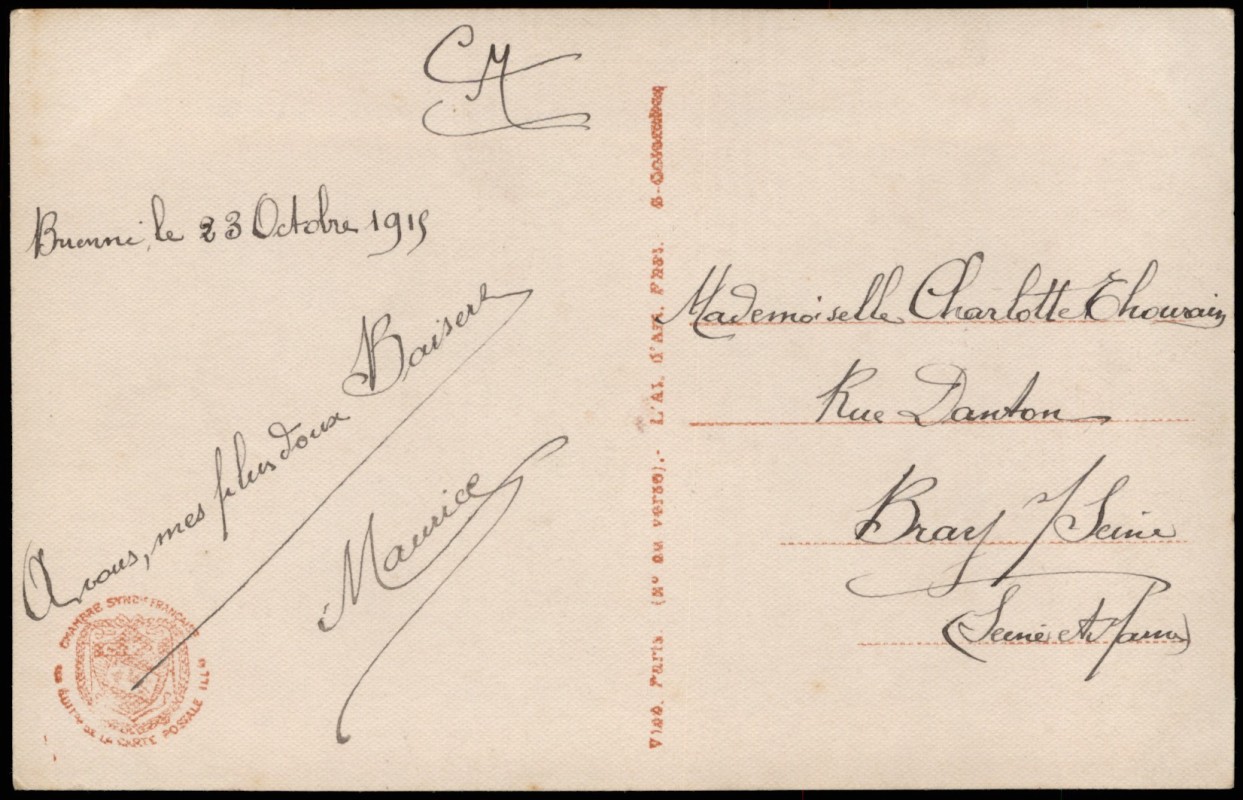 CM
le 23 Octobre 1915
A vous, mes plus doux Baisers
Maurice
CHAMBRE SYNDle FRANÇAISE
DE LA CARTE POSTALE ILLée
Visé. Paris. (No au verso).- L'At. d'Art. Phot. B-Colombes
Mademoiselle Charlotte Thourain
Rue Danton
Bray s/ Seine
(Seine et Marne)